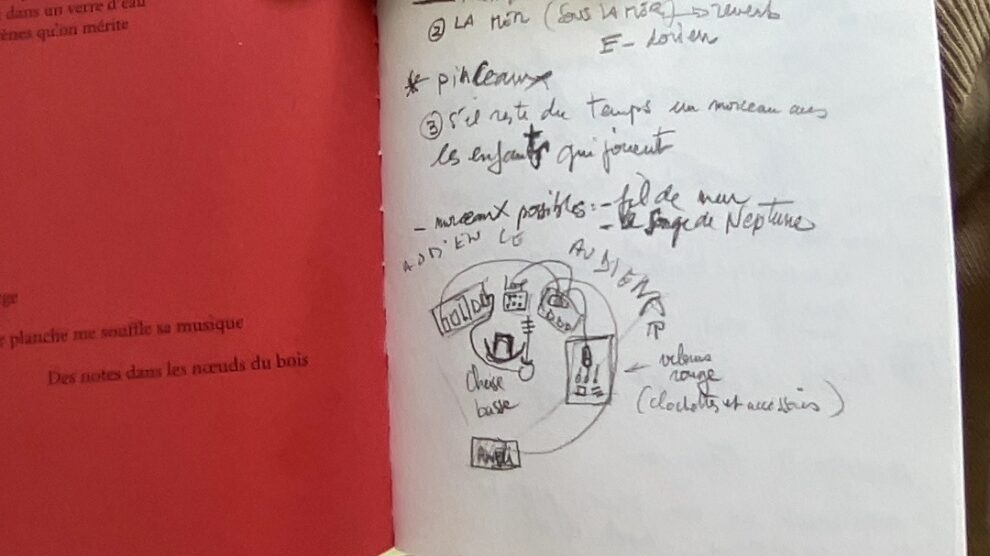 dans un verre d'eau
ènes qu'on mérite
planche me souffle sa musique
Des notes dans les nœuds du bois
② LA MER (SOUS LA MER) → revent
E - dorien
* pinceaux
③ s'il reste du temps un morceau avec
les enfants qui jouent
- morceaux possibles: - fil de mer
- le songe de Neptune
AUDIENCE
AUDIENCE
Loop
Chaise
basse
← velours
rouge
(clochettes et accessoires)
Ampli